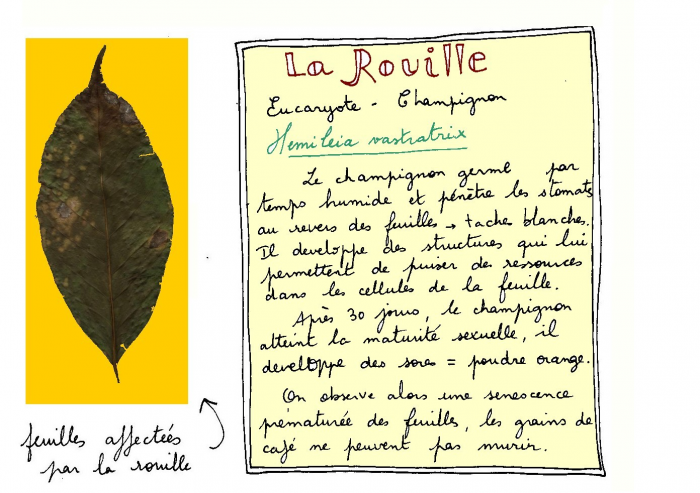 La Rouille
Eucaryote - Champignon
Hemileia vastratrix
Le champignon germe par
temps humide et pénètre les stomates
au revers des feuilles → tache blanches.
Il developpe des structures qui lui
permettent de puiser des ressources
dans les cellules de la feuille.
Après 30 jours, le champignon
atteint la maturité sexuelle, il
developpe des sores = poudre orange.
On observe alors une senescence
prématurée des feuilles, les grains de
café ne peuvent pas murir.
feuilles affectées
par la rouille